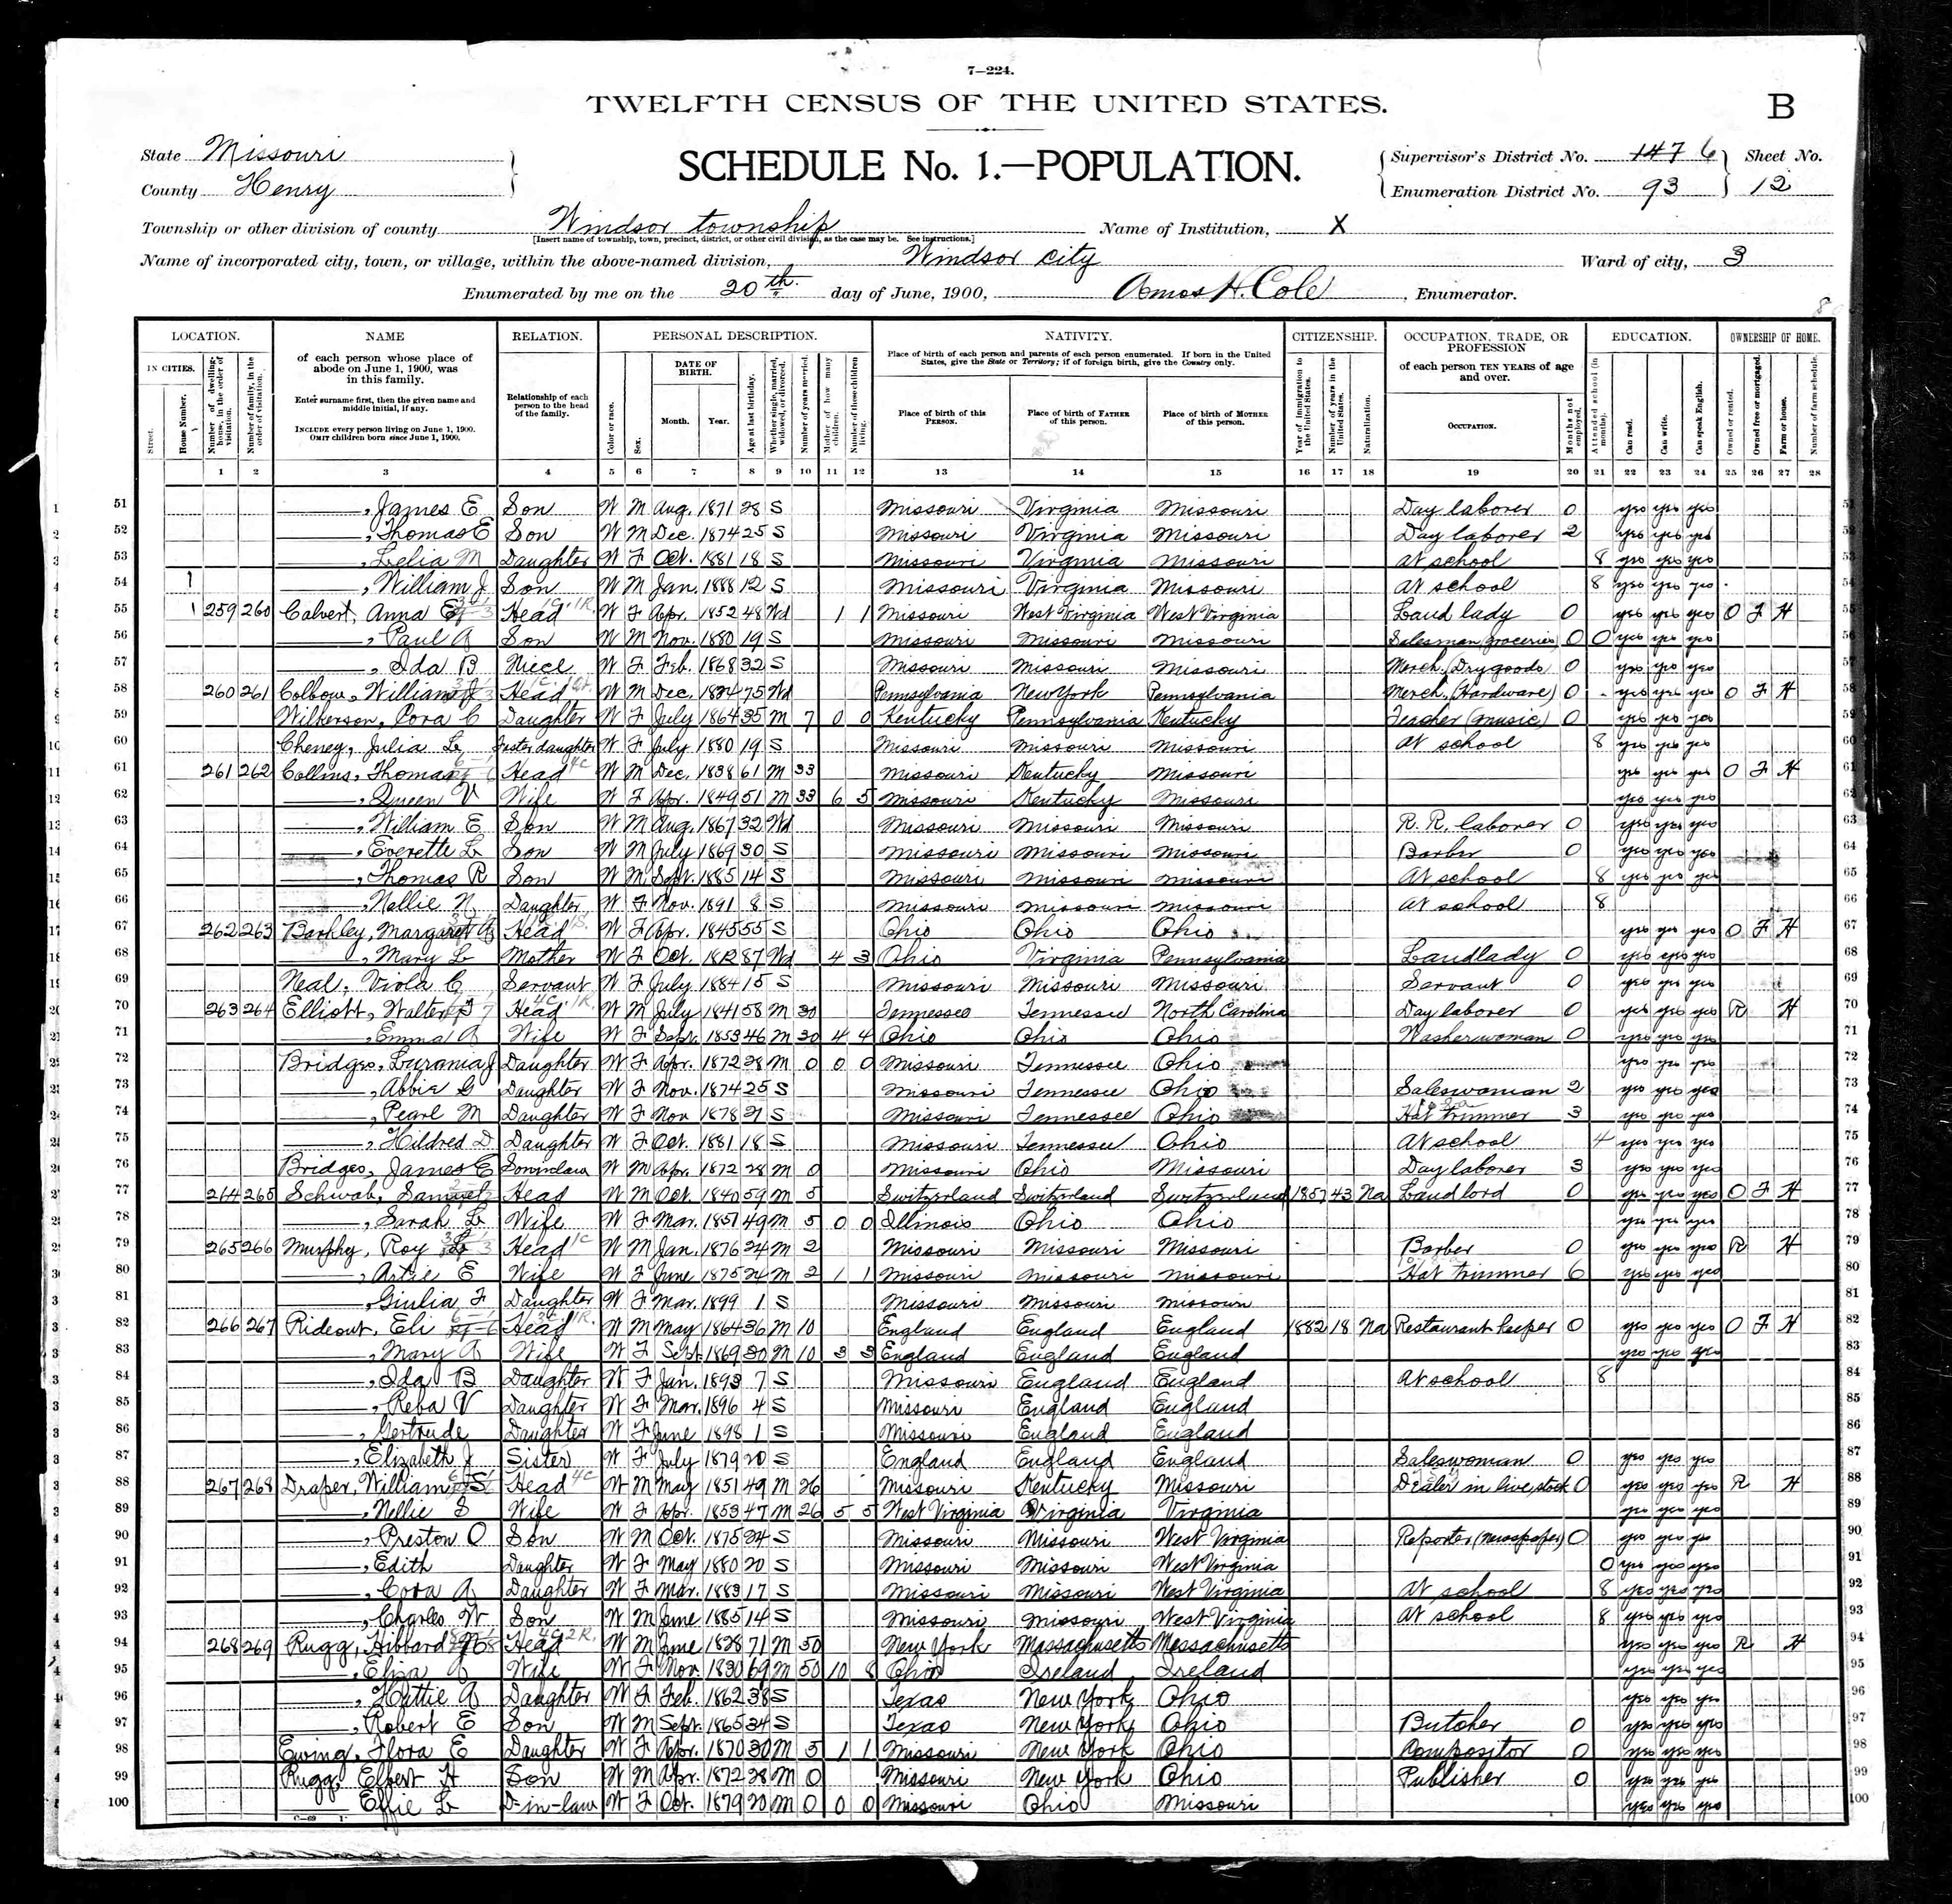 7—224.
TWELFTH CENSUS OF THE UNITED STATES.
B
State Missouri
County Henry
SCHEDULE No. 1.—POPULATION.
Supervisor's District No. 147 6
Enumeration District No. 93
Sheet No.
12
Township or other division of county Windsor township
Name of Institution, X
[Insert name of township, town, precinct, district, or other civil division, as the case may be. See instructions.]
Name of incorporated city, town, or village, within the above-named division, Windsor city
Ward of city, 3
Enumerated by me on the 20th day of June, 1900, Amos H. Cole, Enumerator.
LOCATION. NAME RELATION. PERSONAL DESCRIPTION. NATIVITY. CITIZENSHIP. OCCUPATION, TRADE, OR PROFESSION EDUCATION. OWNERSHIP OF HOME.
IN CITIES. Street. House Number. Number of dwelling-house, in the order of visitation. Number of family, in the order of visitation.
of each person whose place of abode on June 1, 1900, was in this family.
Enter surname first, then the given name and middle initial, if any.
INCLUDE every person living on June 1, 1900. OMIT children born since June 1, 1900.
Relationship of each person to the head of the family.
Color or race. Sex. DATE OF BIRTH. Month. Year. Age at last birthday. Whether single, married, widowed, or divorced. Number of years married. Mother of how many children. Number of these children living.
Place of birth of each person and parents of each person enumerated. If born in the United States, give the State or Territory; if of foreign birth, give the Country only.
Place of birth of this PERSON. Place of birth of FATHER of this person. Place of birth of MOTHER of this person.
Year of immigration to the United States. Number of years in the United States. Naturalization.
of each person TEN YEARS of age and over.
OCCUPATION. Months not employed.
Attended school (in months). Can read. Can write. Can speak English.
Owned or rented. Owned free or mortgaged. Farm or house. Number of farm schedule.
1 2 3 4 5 6 7 8 9 10 11 12 13 14 15 16 17 18 19 20 21 22 23 24 25 26 27 28
51 ——, James E Son W M Aug. 1871 28 S Missouri Virginia Missouri Day laborer 0 yes yes yes 51
52 ——, Thomas E Son W M Dec. 1874 25 S Missouri Virginia Missouri Day laborer 2 yes yes yes 52
53 ——, Lelia M Daughter W F Oct. 1881 18 S Missouri Virginia Missouri At school 8 yes yes yes 53
54 ——, William J Son W M Jan. 1888 12 S Missouri Virginia Missouri At school 8 yes yes yes 54
55 259 260 Calvert, Anna E Head W F Apr. 1852 48 Wd 1 1 Missouri West Virginia West Virginia Land lady 0 yes yes yes O F H 55
56 ——, Paul A Son W M Nov. 1880 19 S Missouri Missouri Missouri Salesman (groceries) 0 0 yes yes yes 56
57 ——, Ida B Niece W F Feb. 1868 32 S Missouri Missouri Missouri Merch. (Dry goods) 0 yes yes yes 57
58 260 261 Colbow, William J Head W M Dec. 1824 75 Wd Pennsylvania New York Pennsylvania Merch. (Hardware) 0 yes yes yes O F H 58
59 Wilkerson, Cora C Daughter W F July 1864 35 M 7 0 0 Kentucky Pennsylvania Kentucky Teacher (music) 0 yes yes yes 59
60 Cheney, Julia L Foster daughter W F July 1880 19 S Missouri Missouri Missouri At school 8 yes yes yes 60
61 261 262 Collins, Thomas Head W M Dec. 1838 61 M 33 Missouri Kentucky Missouri yes yes yes O F H 61
62 ——, Queen V Wife W F Apr. 1849 51 M 33 6 5 Missouri Kentucky Missouri yes yes yes 62
63 ——, William E Son W M Aug. 1867 32 Wd Missouri Missouri Missouri R. R. laborer 0 yes yes yes 63
64 ——, Everette L Son W M July 1869 30 S Missouri Missouri Missouri Barber 0 yes yes yes 64
65 ——, Thomas R Son W M Sept. 1885 14 S Missouri Missouri Missouri At school 8 yes yes yes 65
66 ——, Nellie N Daughter W F Nov. 1891 8 S Missouri Missouri Missouri At school 8 66
67 262 263 Barkley, Margaret A Head W F Apr. 1845 55 S Ohio Ohio Ohio yes yes yes O F H 67
68 ——, Mary L Mother W F Oct. 1812 87 Wd 4 3 Ohio Virginia Pennsylvania Landlady 0 yes yes yes 68
69 Neal, Viola C Servant W F July 1884 15 S Missouri Missouri Missouri Servant 0 yes yes yes 69
70 263 264 Elliott, Walter Head W M July 1841 58 M 30 Tennessee Tennessee North Carolina Day laborer 0 yes yes yes R H 70
71 ——, Emma A Wife W F Sept. 1853 46 M 30 4 4 Ohio Ohio Ohio Washerwoman 0 yes yes yes 71
72 Bridges, Lurania J Daughter W F Apr. 1872 28 M 0 0 0 Missouri Tennessee Ohio yes yes yes 72
73 ——, Abbie G Daughter W F Nov. 1874 25 S Missouri Tennessee Ohio Saleswoman 2 yes yes yes 73
74 ——, Pearl M Daughter W F Nov 1878 21 S Missouri Tennessee Ohio Hat trimmer 3 yes yes yes 74
75 ——, Hildred D Daughter W F Oct. 1881 18 S Missouri Tennessee Ohio At school 4 yes yes yes 75
76 Bridges, James E Soninlaw W M Apr. 1872 28 M 0 Missouri Ohio Missouri Day laborer 3 yes yes yes 76
77 264 265 Schwab, Samuel Head W M Oct. 1840 59 M 5 Switzerland Switzerland Switzerland 1857 43 Na Landlord 0 yes yes yes O F H 77
78 ——, Sarah L Wife W F Mar. 1851 49 M 5 0 0 Illinois Ohio Ohio yes yes yes 78
79 265 266 Murphy, Roy L Head W M Jan. 1876 24 M 2 Missouri Missouri Missouri Barber 0 yes yes yes R H 79
80 ——, Artie E Wife W F June 1875 24 M 2 1 1 Missouri Missouri Missouri Hat trimmer 6 yes yes yes 80
81 ——, Giulia F Daughter W F Mar. 1899 1 S Missouri Missouri Missouri 81
82 266 267 Rideout, Eli Head W M May 1864 36 M 10 England England England 1882 18 Na Restaurant keeper 0 yes yes yes O F H 82
83 ——, Mary A Wife W F Sept. 1869 30 M 10 3 3 England England England yes yes yes 83
84 ——, Ida B Daughter W F Jan. 1893 7 S Missouri England England At school 8 84
85 ——, Reba V Daughter W F Mar. 1896 4 S Missouri England England 85
86 ——, Gertrude Daughter W F June 1898 1 S Missouri England England 86
87 ——, Elizabeth J Sister W F July 1879 20 S England England England Saleswoman 0 yes yes yes 87
88 267 268 Draper, William S Head W M May 1851 49 M 26 Missouri Kentucky Missouri Dealer in live stock 0 yes yes yes R H 88
89 ——, Nellie S Wife W F Apr. 1853 47 M 26 5 5 West Virginia Virginia Virginia yes yes yes 89
90 ——, Preston O Son W M Oct. 1875 24 S Missouri Missouri West Virginia Reporter (newspaper) 0 yes yes yes 90
91 ——, Edith Daughter W F May 1880 20 S Missouri Missouri West Virginia 0 yes yes yes 91
92 ——, Cora A Daughter W F Mar. 1883 17 S Missouri Missouri West Virginia At school 8 yes yes yes 92
93 ——, Charles W Son W M June 1885 14 S Missouri Missouri West Virginia At school 8 yes yes yes 93
94 268 269 Rugg, Hibbard Head W M June 1828 71 M 50 New York Massachusetts Massachusetts yes yes yes R H 94
95 ——, Eliza A Wife W F Nov. 1830 69 M 50 10 8 Ohio Ireland Ireland yes yes yes 95
96 ——, Hattie A Daughter W F Feb. 1862 38 S Texas New York Ohio yes yes yes 96
97 ——, Robert E Son W M Sept. 1865 34 S Texas New York Ohio Butcher 0 yes yes yes 97
98 Ewing, Flora E Daughter W F Apr. 1870 30 M 5 1 1 Missouri New York Ohio Compositor 0 yes yes yes 98
99 Rugg, Elbert H Son W M Apr. 1872 28 M 0 Missouri New York Ohio Publisher 0 yes yes yes 99
100 ——, Effie L D-in-law W F Oct. 1879 20 M 0 0 0 Missouri Ohio Missouri yes yes yes 100